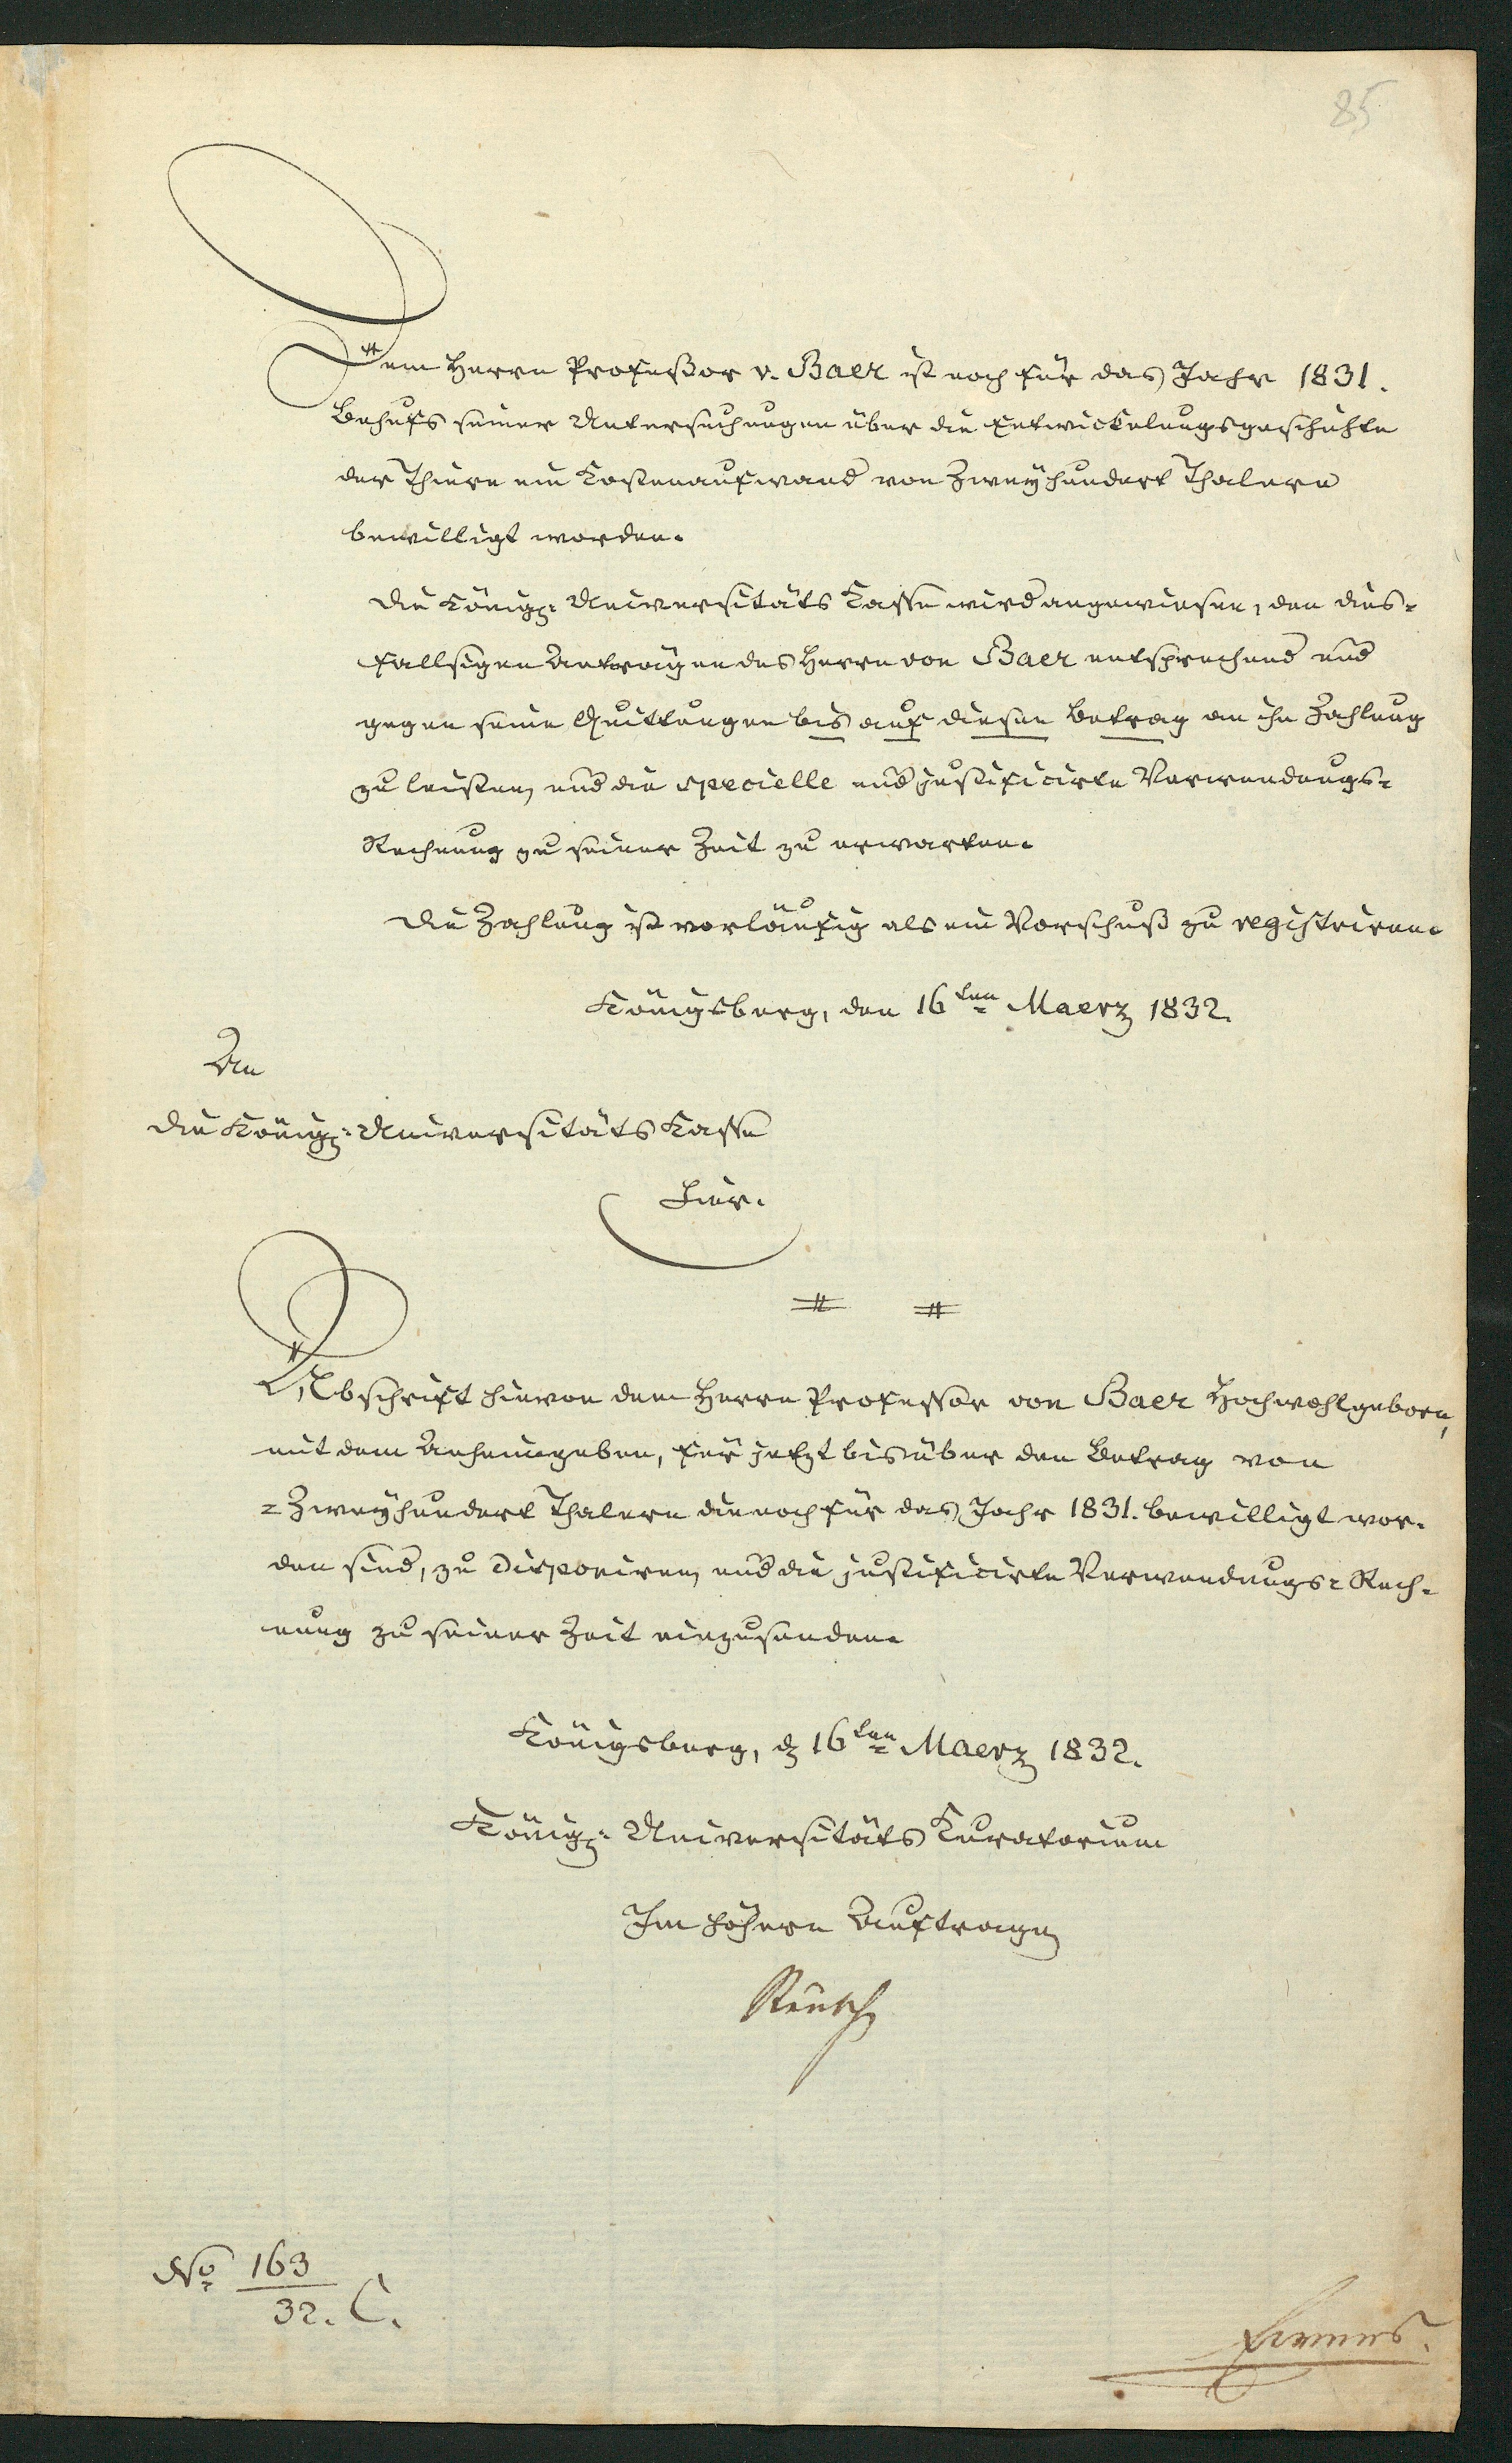 85
Dem Herrn Profeßor v. Baer ist noch für das Jahr 1831.
Behufs seiner Untersuchungen über die Entwickelungsgeschichte
der Thiere ein Kostenaufwand von Zweyhundert Thalern
bewilligt worden.
Die Königl: Universitäts Kasse wird angewiesen, den dies-
fallsigen Anträgen des Herrn von Baer entsprechend und
gegen seine Quittungen bis auf diesen Betrag an ihn Zahlung
zu leisten, und die specielle und justificirte Verwendungs-
Rechnung zu seiner Zeit zu erwarten.
Die Zahlung ist vorläufig als ein Vorschuß zu registriren.
Königsberg, den 16ten Maerz 1832.
An
die Königl: Universitäts Kasse
hier.
Abschrift hievon dem Herrn Professor von Baer Hochwohlgeborn,
mit dem Anheimgeben, für jetzt bis über den Betrag von
=Zweyhundert Thalern die noch für das Jahr 1831. bewilligt wor-
den sind, zu disponiren, und die justificirte Verwendungs-Rech-
nung zu seiner Zeit einzusenden.
Königsberg, d 16ten Maerz 1832.
Königl: Universitäts Kuratorium
Im höhern Auftrage
Reusch
No 163
32. C.